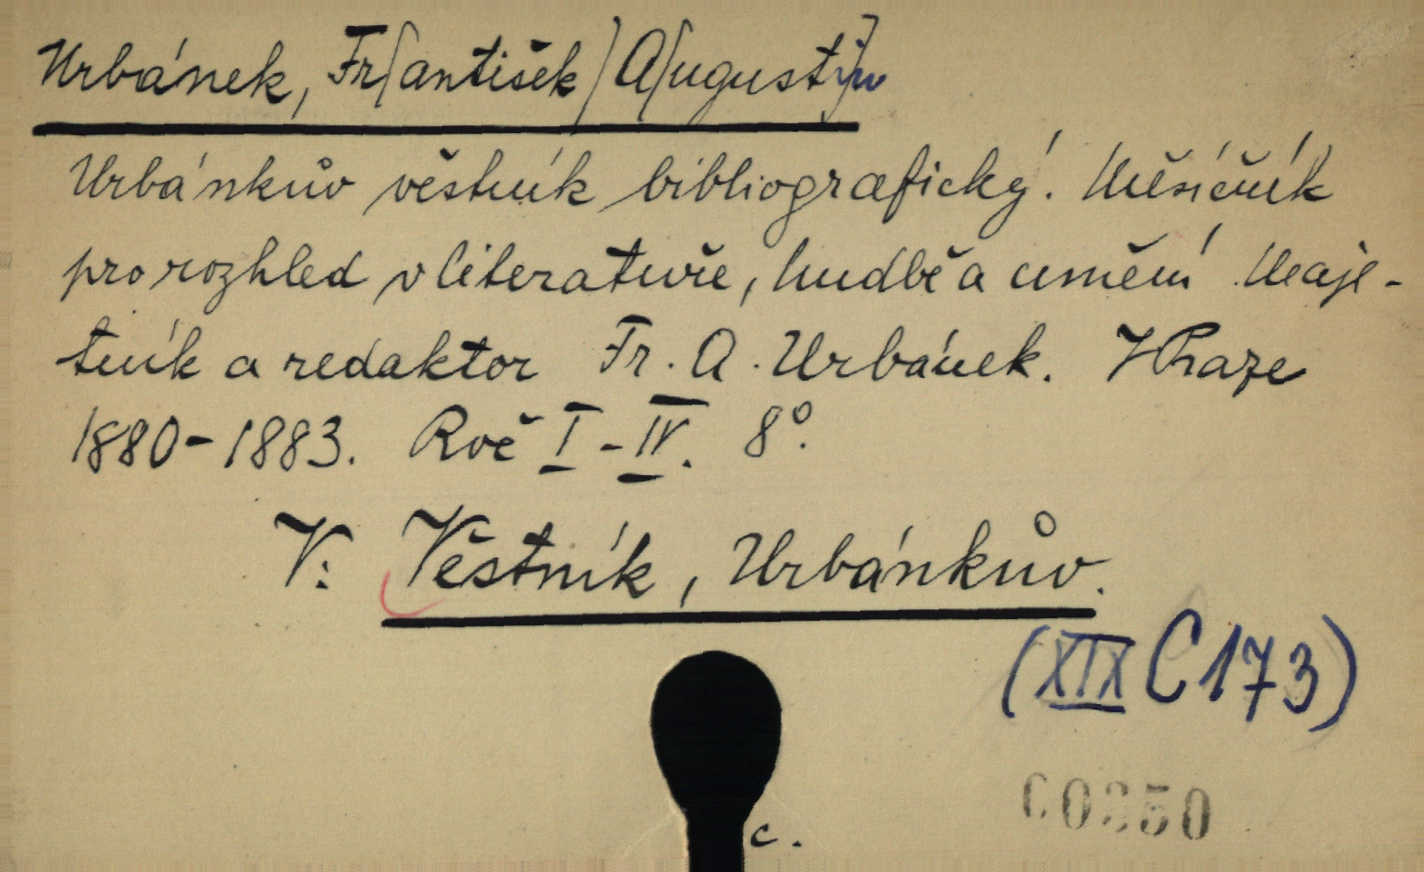 Urbánek, Fr(antišek) A(ugustin)
Urbánkův věstník bibliografický. Měsíčník
pro rozhled v literatuře, hudbě a umění Maje-
tník a redaktor Fr. A. Urbánek. V Praze
1880-1883. Roč I-IV. 8°.
V: Věstník, Urbánkův.
(XIX C 173)
c.